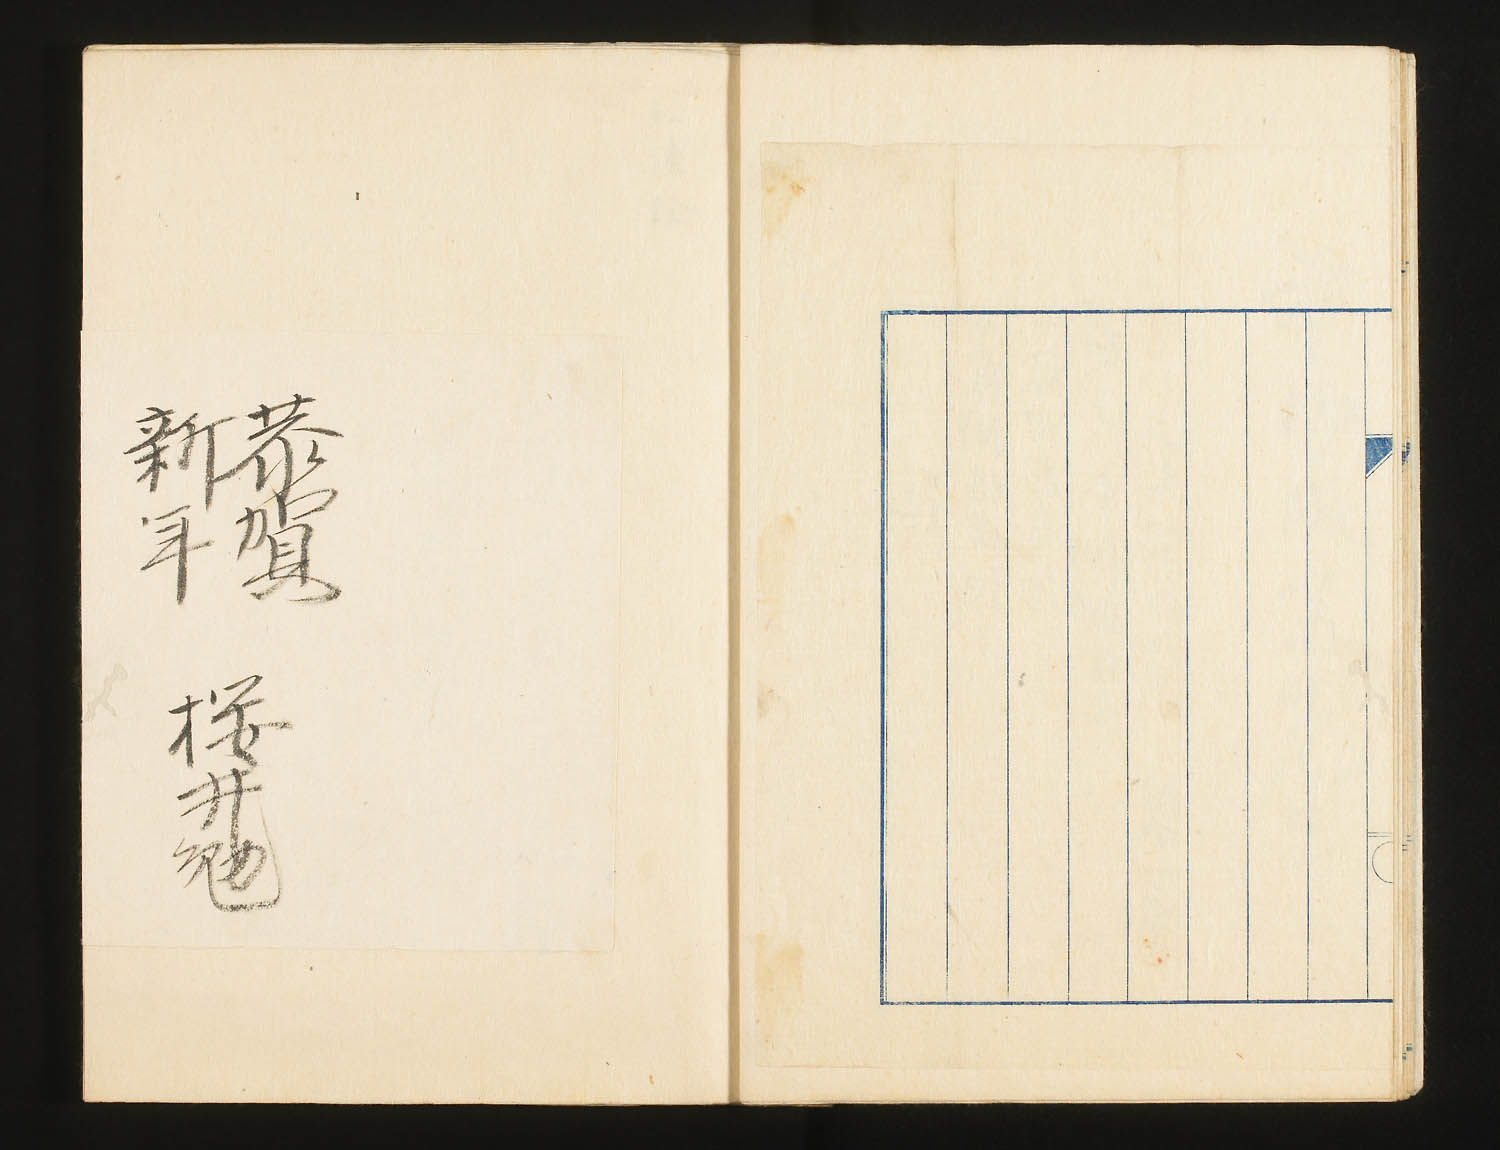 恭賀
新年
桜井勉